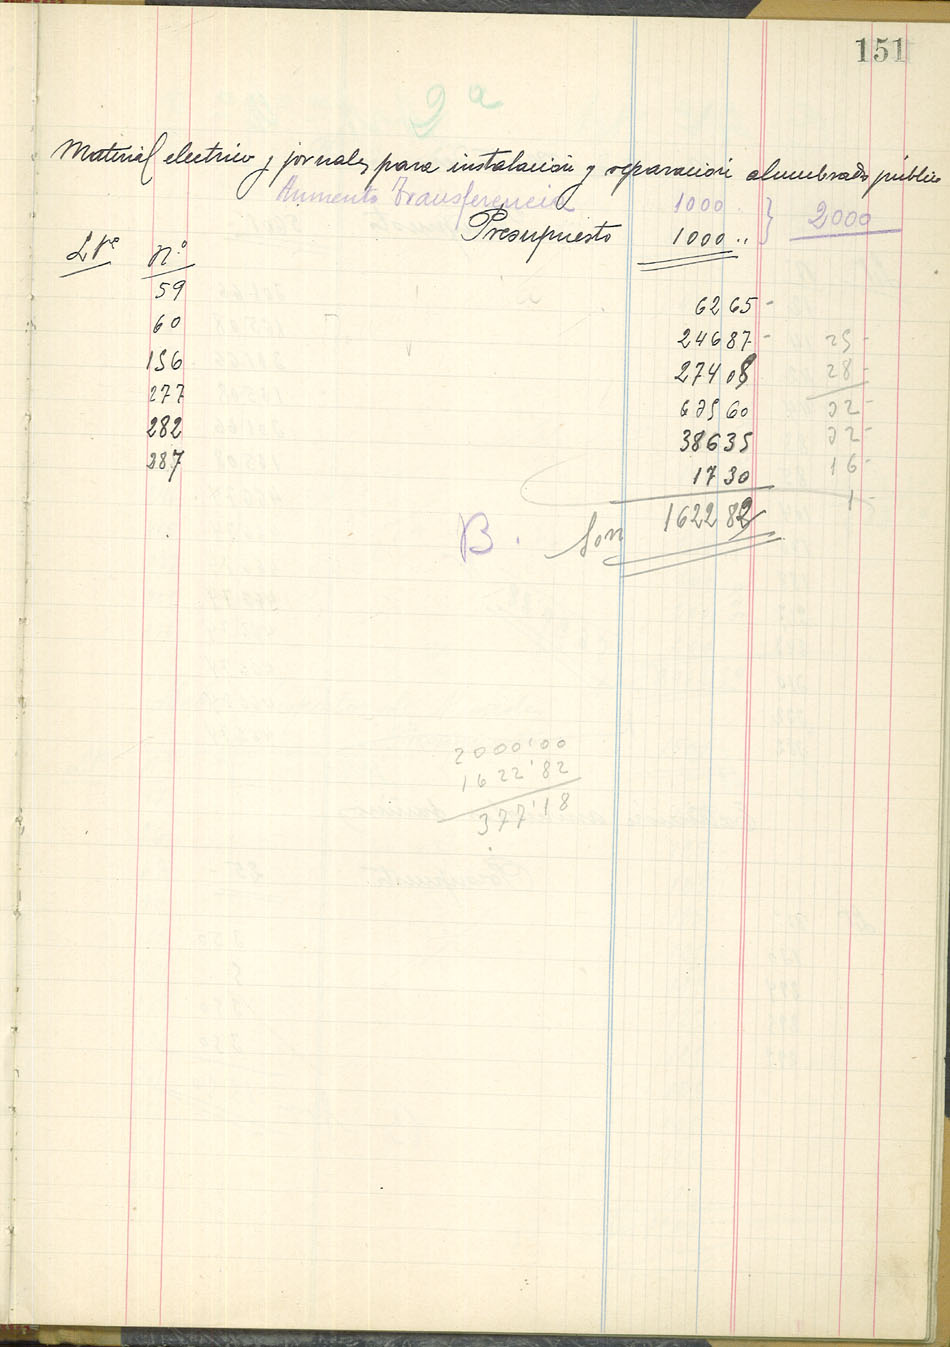 151
2ª
Material electrico y jornales para instalación y reparación alumbrado público
Aumento Transferencia 1000 } 2000
Presupuesto 1000 "
nº
59 62 65 -
60 246 87 - 25 -
156 274 08 28 -
277 635 60 22 -
282 386 35 22 -
287 17 30 16 -
1 -
B. Son 1622 82
2000'00
1622'82
377'18